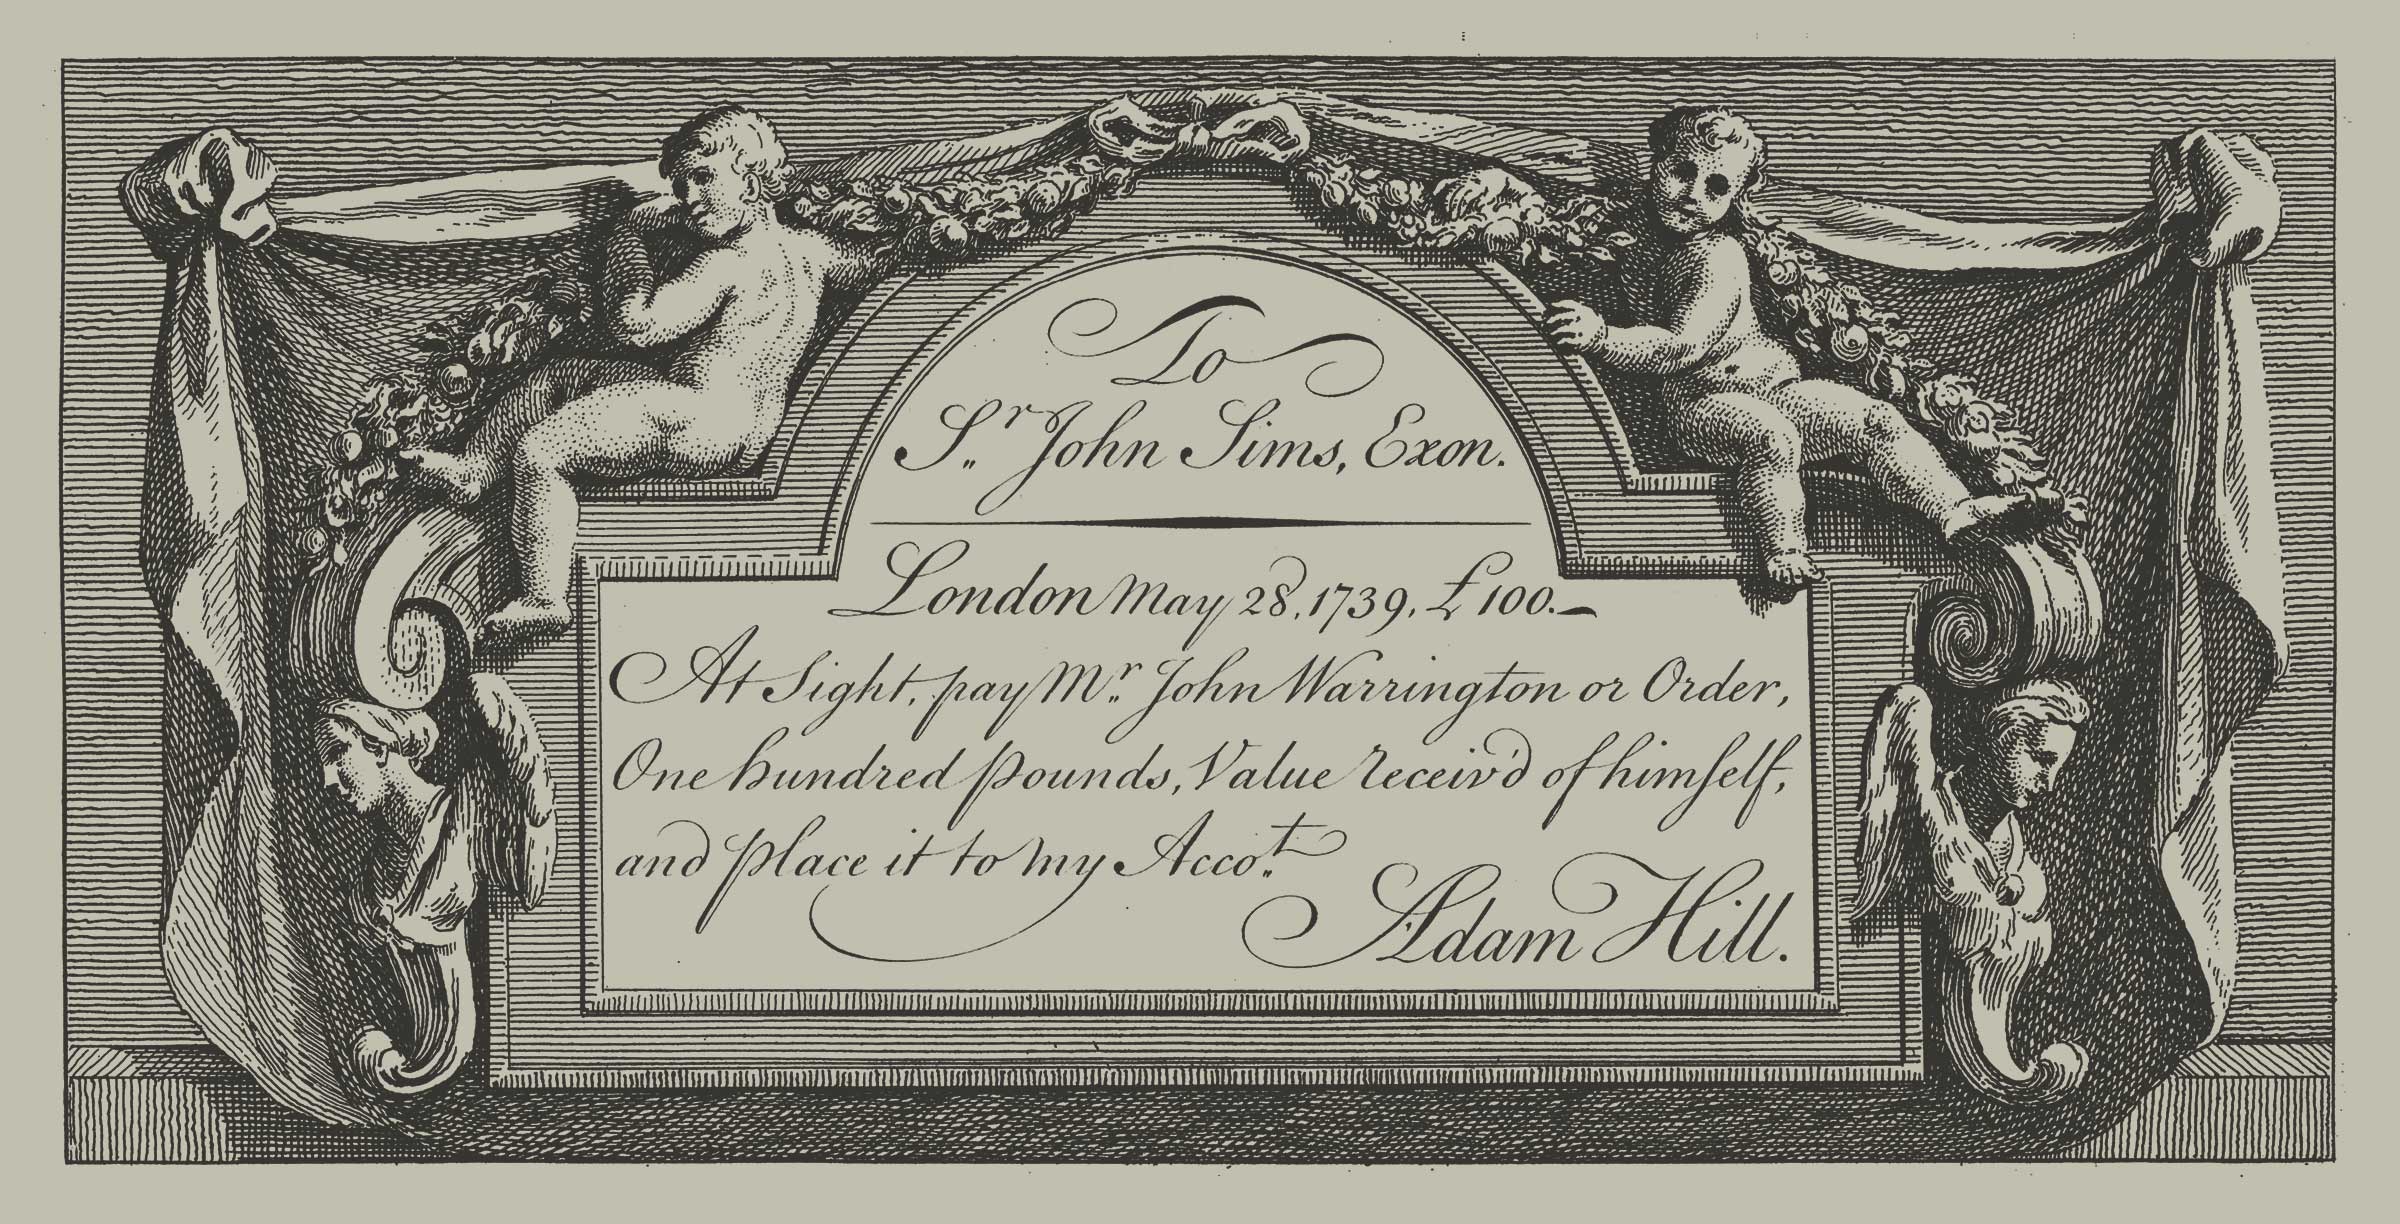 To
Sr. John Sims, Exon.
London May 28, 1739, £100.
At Sight, pay Mr. John Warrington or Order,
One hundred pounds, Value receiv'd of himself,
and place it to my Accot.
Adam Hill.